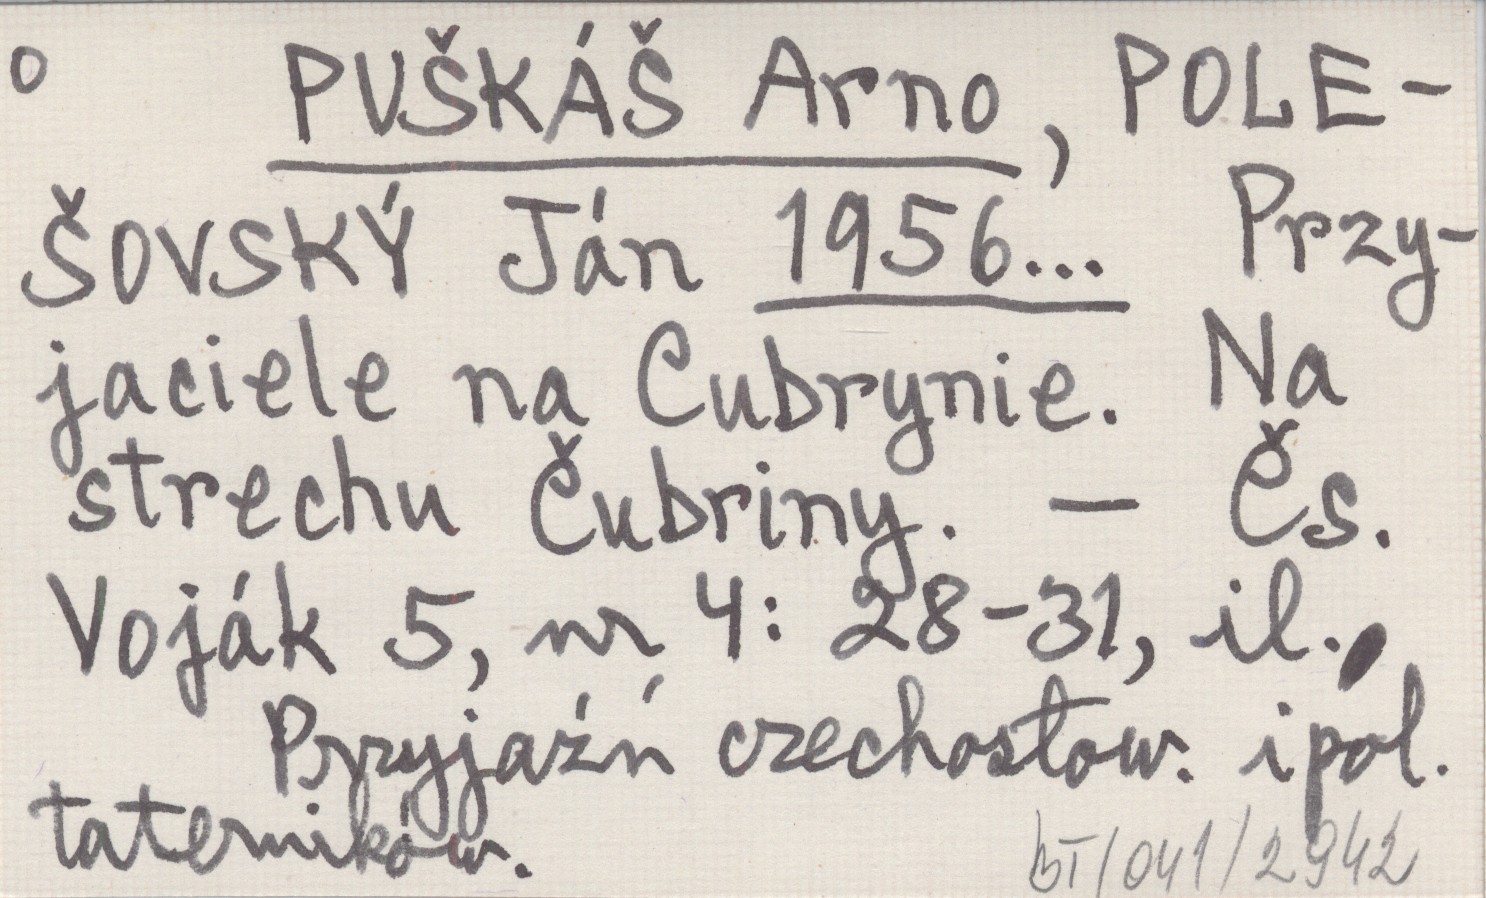 o PUŠKÁŠ Arno, POLE-
ŠOVSKÝ Ján 1956... Przy-
jaciele na Cubrynie. Na
strechu Čubriny. — Čs.
Voják 5, nr 4: 28-31, il.,
Przyjaźń czechosłow. i pol.
taterników.
BT/041/2942